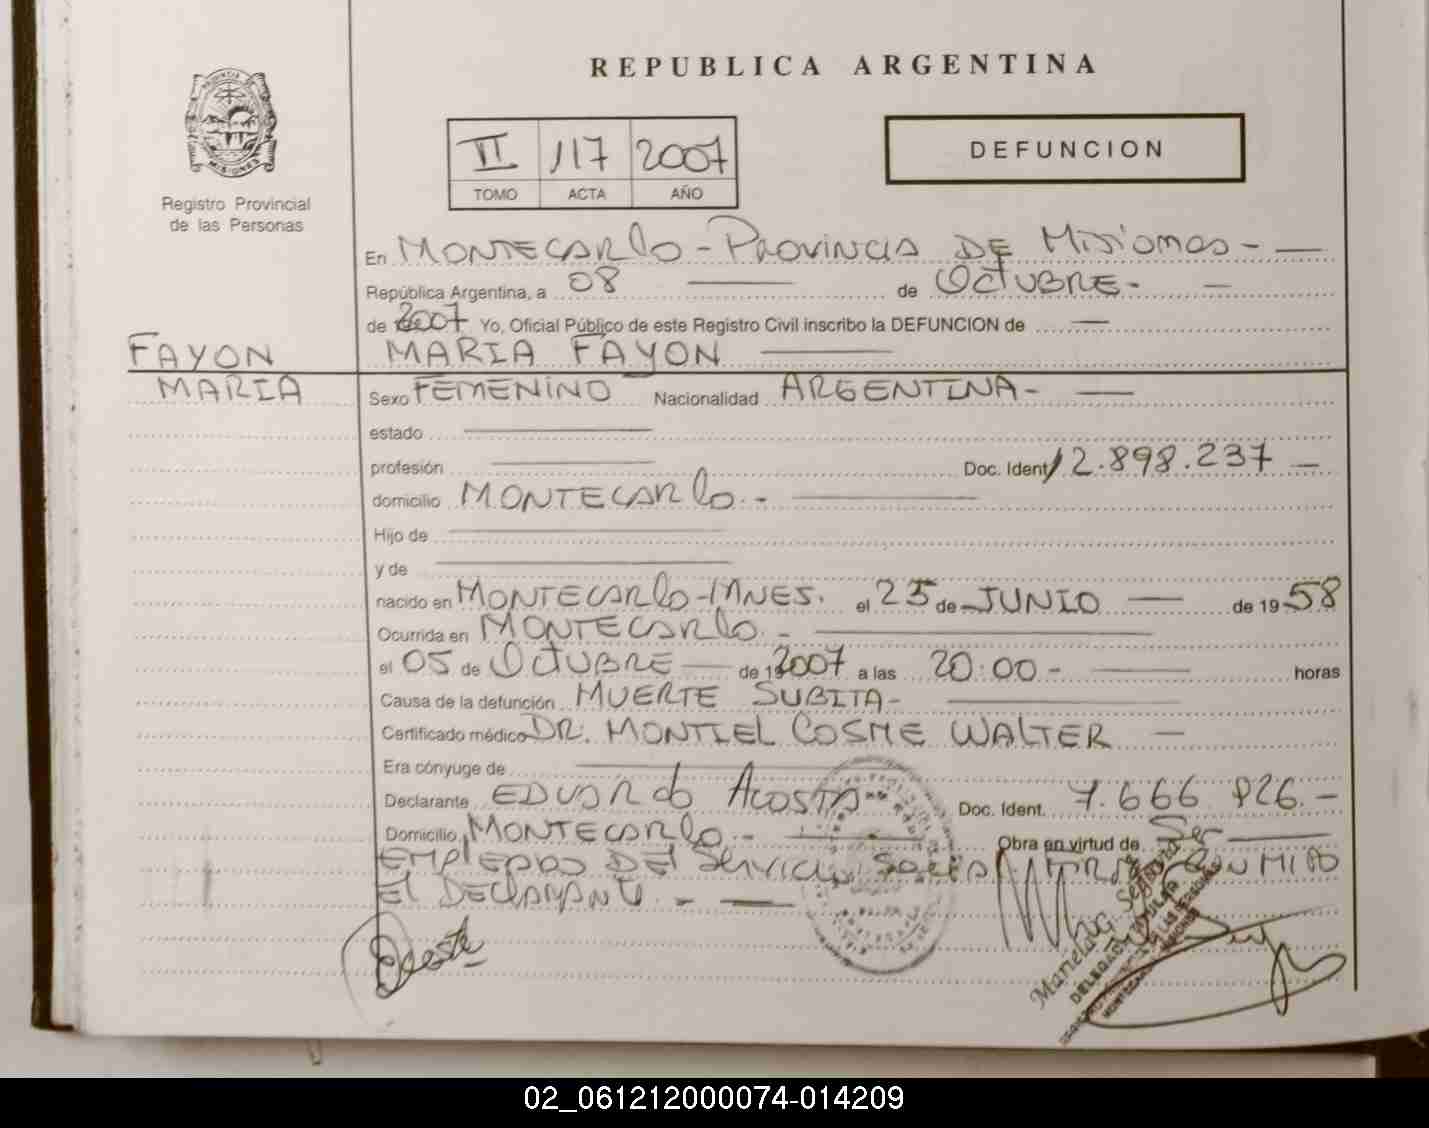 REPUBLICA ARGENTINA
PROVINCIA DE MISIONES
Registro Provincial
de las Personas
II 117 2007
TOMO ACTA AÑO
DEFUNCION
En MONTECARLO - PROVINCIA DE MISIONES -
República Argentina, a 08 de OCTUBRE -
de 2007 Yo, Oficial Público de este Registro Civil inscribo la DEFUNCION de
MARIA FAYON
FAYON
MARIA
Sexo FEMENINO Nacionalidad ARGENTINA -
estado
profesión Doc. Ident. 12.898.237 -
domicilio MONTECARLO. -
Hijo de
y de
nacido en MONTECARLO - MNES. el 25 de JUNIO de 1958
Ocurrida en MONTECARLO. -
el 05 de OCTUBRE de 19 2007 a las 20:00 - horas
Causa de la defunción MUERTE SUBITA -
Certificado médico DR. MONTIEL COSME WALTER -
Era cónyuge de
Declarante EDUARDO ACOSTA - Doc. Ident. 7.666 826. -
Domicilio MONTECARLO. - Obra en virtud de Ser
EMPLEADO DEL Servicio
El DECLARANTE. -
Mariela
DELEGADA TITULAR
02_061212000074-014209